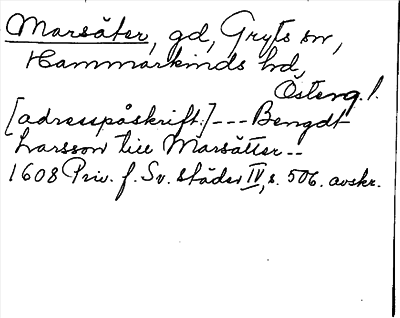 Marsäter, gd, Gryts sn,
Hammarkinds hd,
Österg. l.
[adresspåskrift:] --- Bengdt
Larsson till Marsätter --
1608 Priv. f. Sv. städer IV, s. 506. avskr.